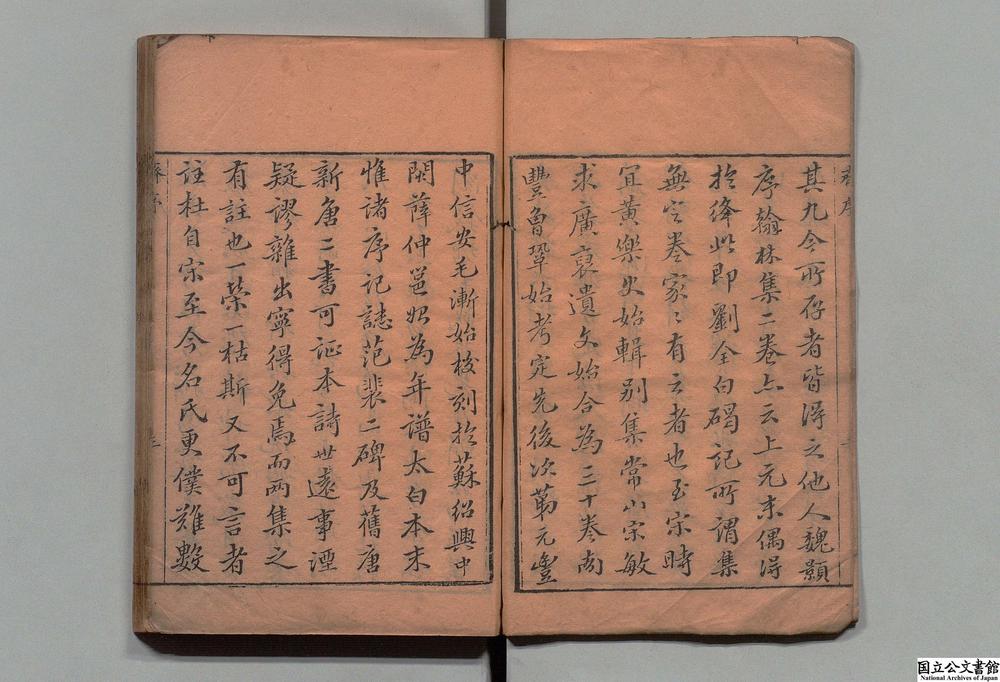 其九今所存者皆得之他人魏顥
序翰林集二卷亦云上元末偶得
於絳此即劉全白碣記所謂集
無定卷家〻有云者也至宋時
宜黃樂史始輯别集常山宋敏
求廣裒遺文始合為三十卷南
豐曾鞏始考定先後次第元豐
中信安毛漸始校刻於蘇紹興中
閑薛仲邕始為年譜太白本末
惟諸序記誌范裴二碑及舊唐
新唐二書可证本詩世遠事湮
疑謬雜出寧得免焉而兩集之
有註也一榮一枯斯又不可言者
註杜自宋至今名氏更僕難數
序
三
国立公文書館
National Archives of Japan